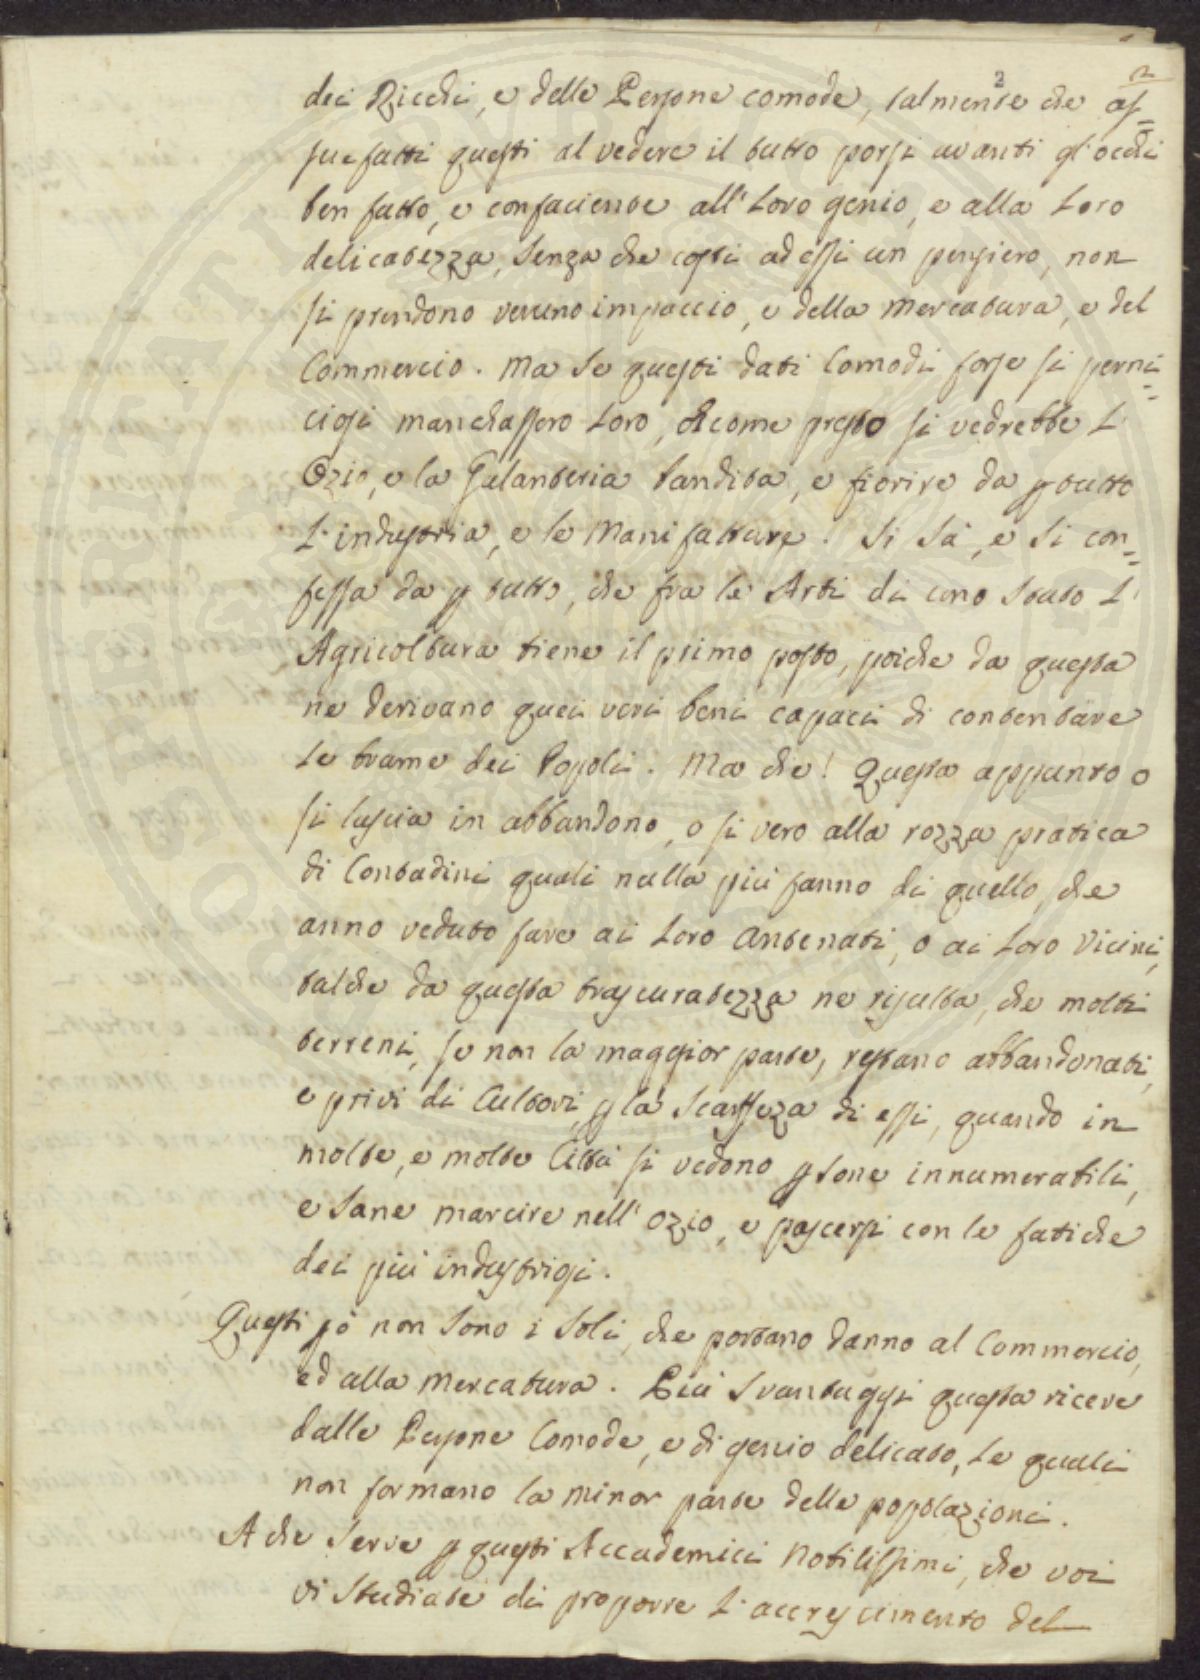 2
2
dei Ricchi, e delle Persone comode, talmente che as=
suefatti questi al vedere il tutto porsi avanti gl'occhi
ben fatto, e confaciente all' Loro genio, e alla Loro
delicatezza, senza che costi ad essi un pensiero, non
si prendono veruno impaccio, e della Mercatura, e del
Commercio. Ma se questi dati Comodi forse si perni=
ciosi manchassero Loro, che come presto si vedrebbe L'
Ozio, e la Galanteria bandita, e fiorire da p tutto
L'industria, e le Manifatture! Si sà, e si con=
fessa da p tutto, che fra le Arti di uno Stato L'
Agricoltura tiene il primo posto, poiche da questa
ne derivano quei veri beni capaci di contentare
Le brame dei Popoli. Ma che! Questa appunto o
si lascia in abbandono, o si vero alla rozza pratica
di Contadini quali nulla più fanno di quello, che
anno veduto fare ai Loro Antenati, o ai Loro Vicini,
talche da questa trascuratezza ne risulta, che molti
terreni, se non la maggior parte, restano abbandonati,
e privi di Cultori p la scarsezza di essi, quando in
molte, e molte Città si vedono psone innumerabili,
e sane marcire nell' ozio, e pascersi con le fatiche
dei più industriosi.
Questi pò non sono i soli, che portano danno al Commercio,
ed alla Mercatura. Più svantaggi questa riceve
dalle Persone Comode, e di genio delicato, Le quali
non formano la minor parte delle popolazioni.
A che serve p questi Accademici Nobilissimi, che voi
vi studiate di proporre L'accrescimento del
PUBLICAE UTILITATI PROSPERITATI